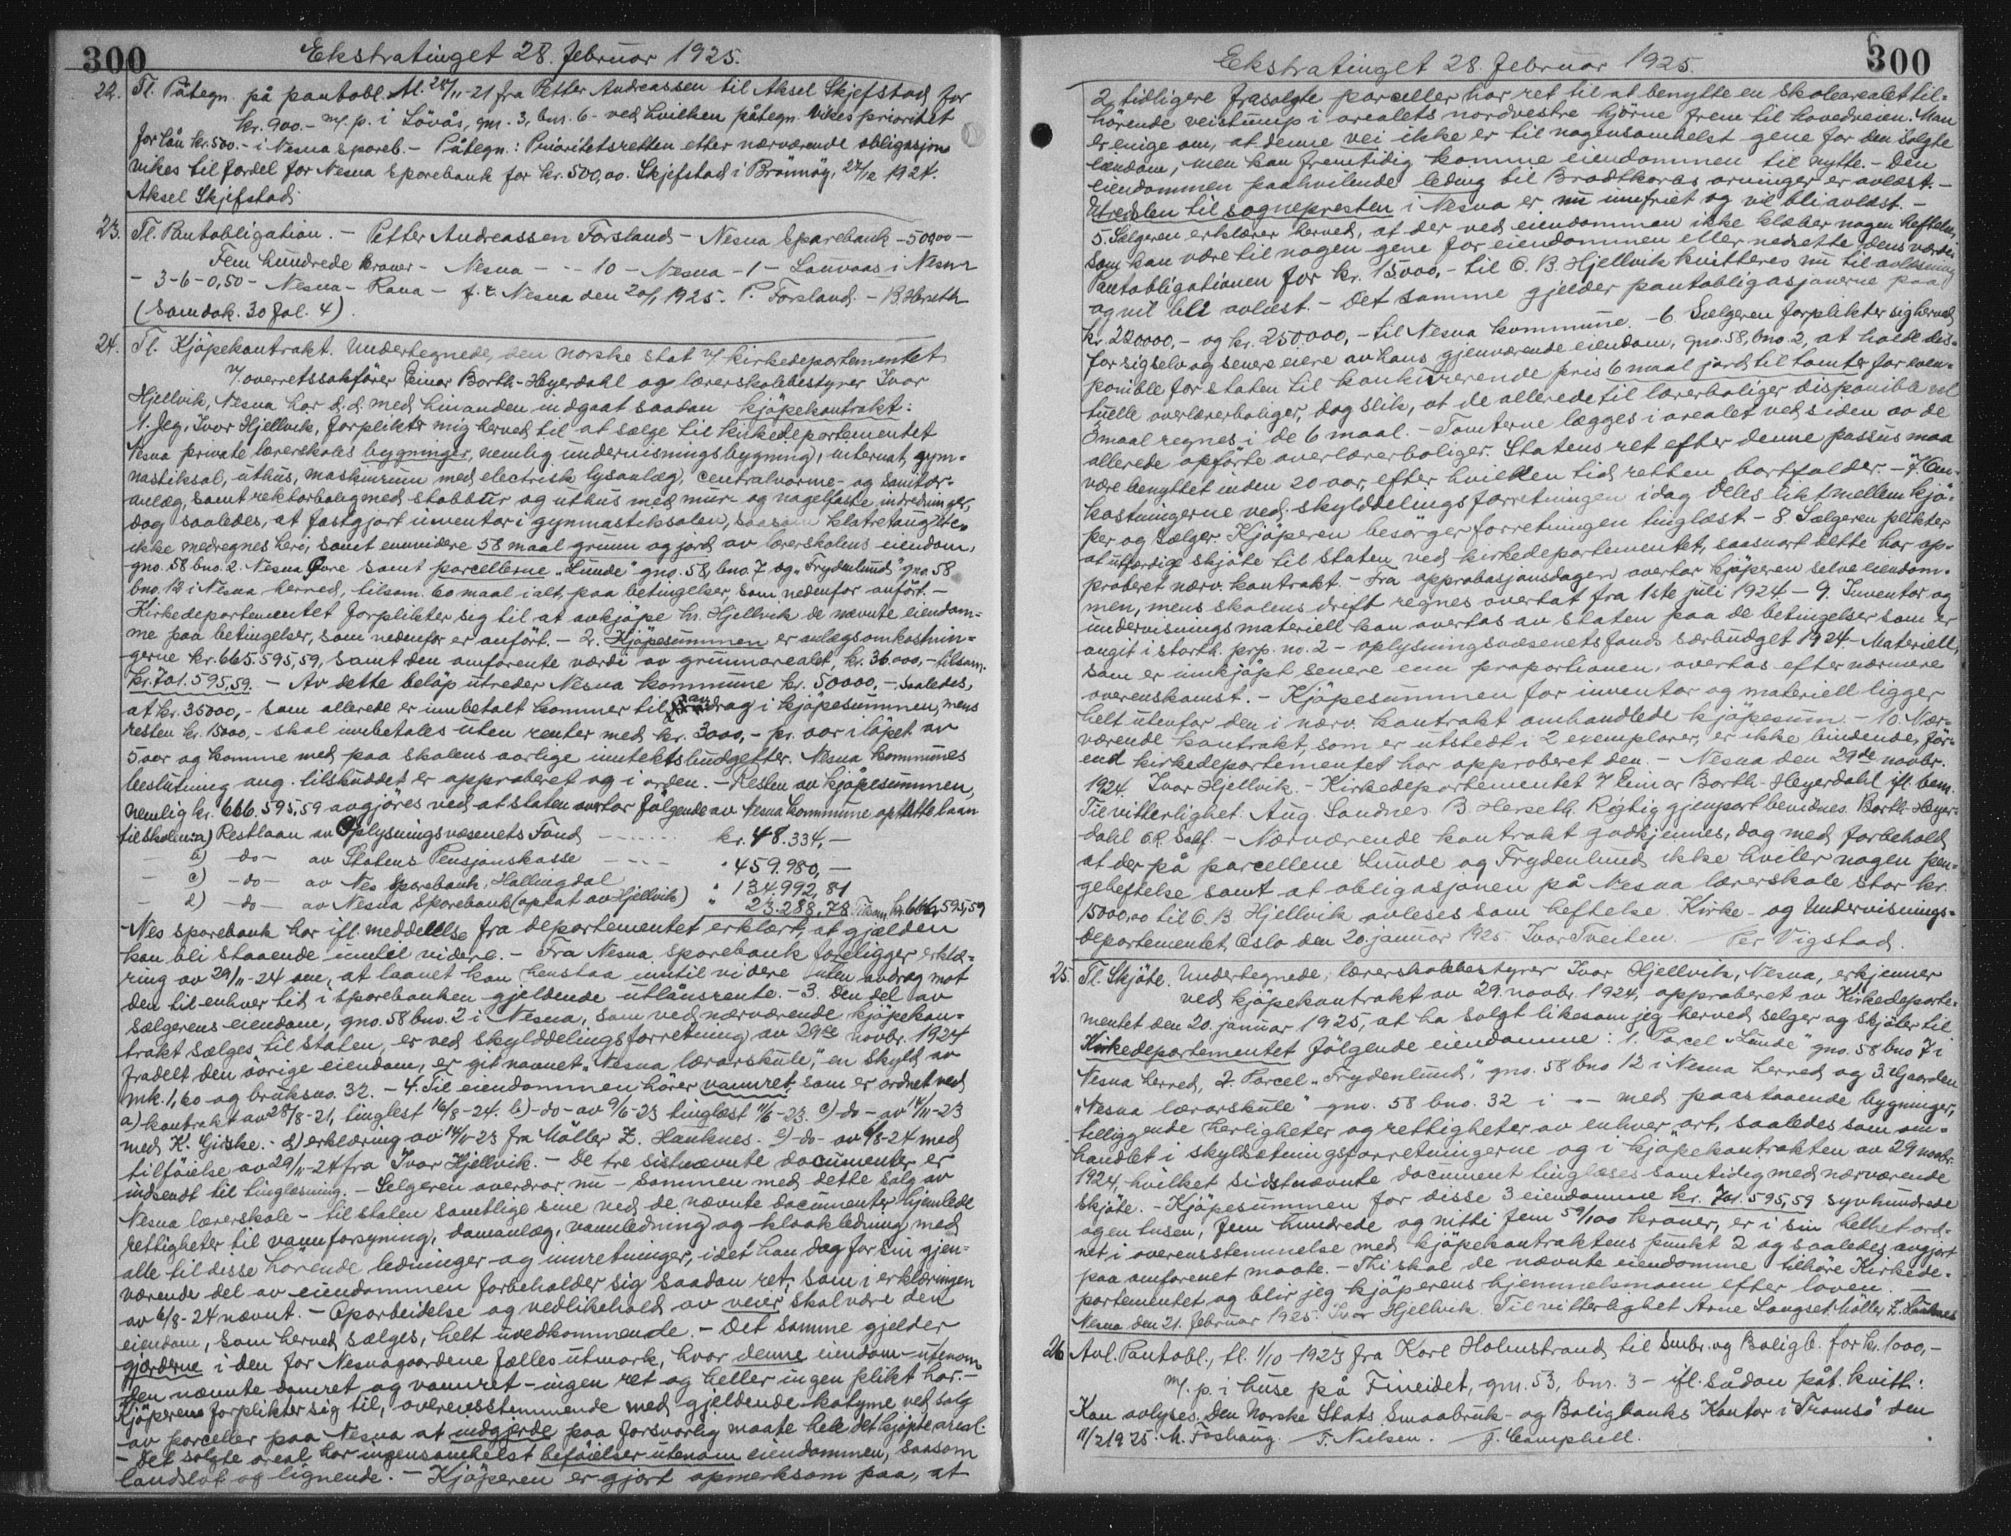 300
Ekstratinget 28. februar 1925.
22. Tl. Påtegn. på pantobl. tl. 28/11-21 fra Petter Andreassen til Aksel Skjefstad for
kr. 900.- m/ p. i Lövås, gnr. 3, bnr. 6 - ved hvilken påtegn. vikes prioritet
for lån kr. 500.- i Nesna spareb. - Påtegn.: Prioritetsretten etter nærværende obligasjon
vikes til fordel for Nesna Sparebank for kr. 500,00. Skjefstad i Brönnöy, 27/12 1924.
Aksel Skjefstad
23. Tl. Pantobligation. - Petter Andreassen Forsland - Nesna Sparebank - 500,00 -
Fem hundrede kroner - Nesna - - - 10 - Nesna - 1 - Lauvaas i Nesna
- 3 - 6 - 0,50 - Nesna - Rana - f. t. Nesna den 20/1 1925. P. Forsland. - B. Herseth
(Samdok. 30 fol. 4).
24. Tl. Kjöpekontrakt. Undertegnede, den norske stat v/ kirkedepartementet
v/ overretssakförer Einar Borth-Heyerdahl og lærerskolebestyrer Ivar
Hjellvik, Nesna har d.d. med hinanden indgaat saadan kjöpekontrakt:
1. Jeg, Ivar Hjellvik, forplikter mig herved til at sælge til kirkedepartementet
Nesna private lærerskoles bygninger, nemlig undervisningsbygning, internat, gym-
nastiksal, uthus, maskinrum med electrisk lysanlæg, centralvarme- og sanitær-
anlæg, samt rektorbolig med stabbur og uthus med mur- og nagelfaste indredninger,
dog saaledes, at fastgjort inventar i gymnastiksalen, saasom klatretaug etc.
ikke medregnes heri, samt endvidere 58 maal grunn og jord av lærerskolens eiendom,
gno. 58 bno. 2. Nesna Övre samt parcellerne "Lunde" gno. 58, bno. 7 og "Frydenlund" gno. 58
bno. 12 i Nesna herred, tilsam. 60 maal ialt, paa betingelser, som nedenfor anfört. -
Kirkedepartementet forplikter sig til at avkjöpe hr. Hjellvik de nævnte eiendom-
me paa betingelser, som nedenfor er anfört. - 2. Kjöpesummen er anlægsomkostnin-
gerne kr. 665.595,59, samt den omforente værdi av grunnarealet, kr. 36.000,- tilsam.
kr. 701.595,59. - Av dette belöp utreder Nesna kommune kr. 50000,- saaledes,
at kr. 35000,- som allerede er innbetalt kommer til fradrag i kjöpesummen, mens
resten kr. 15000,- skal innbetales uten renter med kr. 3000,- pr. aar i löpet av
5 aar og komme med paa skolens aarlige inntektsbudgetter. Nesna kommunes
beslutning ang. tilskuddet er approberet og i orden. - Resten av kjöpesummen,
nemlig kr. 666.595,59 avgjöres ved at staten overtar fölgende av Nesna kommune optatte laan
til skolen: a) Restlaan av Oplysningsvæsenets Fond - - - - - - kr. 48.334,-
- b) -do- av Statens Pensjonskasse - - - - " 459.980,-
- c) -do- av Nes Sparebank, Hallingdal " 134.992,81
- d) -do- av Nesna Sparebank (optat av Hjellvik) " 23.288,78 Tilsam. kr. 666.595,59
Nes sparebank har ifl. meddelelse fra departementet erklært, at gjælden
kan bli staaende inntil videre. - Fra Nesna sparebank foreligger erklæ-
ring av 29/11-24 om, at laanet kan henstaa inntil videre uten avdrag mot
den til enhver tid i sparebanken gjeldende utlånsrente. - 3. Den del av
sælgerens eiendom, gno. 58 bno. 2 i Nesna, som ved nærværende kjöpekon-
trakt sælges til staten, er ved skylddelingsforretning av 29de novbr. 1924
fradelt den övrige eiendom, er git navnet "Nesna lærarskule", en skyld av
mk. 1,60 og bruksno. 32. - 4. Til eiendommen hörer vannret som er ordnet ved
a) kontrakt av 28/8-21, tinglest 16/8-24. b) -do- av 9/6-23 tinglæst 11/6-23. c) -do- av 14/11-23
med K. Giske. - d) erklæring av 14/11-23 fra Möller Z. Hauknes. e) -do- av 6/8-24 med
tilföielse av 29/11-24 fra Ivar Hjellvik. - De tre sistnævnte documenter er
indsendt til tinglæsning. - Selgeren overdrar nu - sammen med dette salg av
Nesna lærerskole - til staten samtlige sine ved de nævnte documenter hjemlede
rettigheter til vannforsyning, damanlæg, vannledning og kloakledning med
alle til disse hörende ledninger og innretninger, idet han dog for sin gjen-
værende del av eiendommen forbeholder sig saadan ret, som i erklæringen
av 6/8-24 nævnt. - Oparbeidelse og vedlikehold av veier skal være den
eiendom, som herved sælges, helt uvedkommende. - Det samme gjelder
gjærderne i den for Nesnagaardene fælles utmark, hvor denne eiendom - utenom
den nævnte damret og vannret - ingen ret og heller ingen plikt har. -
Kjöperen forplikter sig til, overensstemmende med gjeldende kotyme ved salg
av parceller paa Nesna at indgjerde paa forsvarlig maate hele det kjöpte areal.
- Det solgte areal har ingensomhelst beföielser utenom eiendommen, saasom
landslot og lignende. - Kjöperen er gjort opmerksom paa, at
300
Ekstratinget 28. februar 1925.
2 tidligere frasolgte parceller har ret til at benytte en skolearealet til-
hörende veistump i arealets nordvestre hjörne frem til hovedveien. Man
er enige om, at denne vei ikke er til nogensomhelst gene for den solgte
eiendom, men kan fremtidig komme eiendommen til nytte. - Den
eiendommen paahvilende leding til Brodtkorbs arvinger er avlæst. -
Utredslen til sognepresten i Nesna er nu innfriet og vil bli avlæst. -
5. Sælgeren erklærer herved, at der ved eiendommen ikke klæber nogen heftelse,
som kan være til nogen gene for eiendommen eller nedsette dens værdi.
Pantobligationen for kr. 15000,- til O. B. Hjellvik kvitteres nu til avlæsning
og vil bli avlæst. - Det samme gjelder pantobligasjonerne paa
kr. 220000,- og kr. 250.000,- til Nesna kommune. - 6. Sælgeren forplikter sig herved
for sig selv og senere eiere av hans gjenværende eiendom, gno. 58, bno. 2, at holde dis-
ponible for staten til konkurrerende pris 6 maal jord til tomter for even-
tuelle overlærerboliger, dog slik, at de allerede til lærerboliger disponible
3 maal regnes i de 6 maal. - Tomterne lægges i arealet ved siden av de
allerede opförte overlærerboliger. Statens ret efter denne passus maa
være benyttet inden 20 aar, efter hvilken tid retten bortfalder. - 7. Om-
kostningerne ved skylddelingsforretningen idag deles likt mellem kjö-
per og sælger. Kjöperen besörger forretningen tinglæst - 8. Sælgeren plikter
at utfærdige skjöte til staten ved kirkedepartementet, saasnart dette har ap-
proberet nærv. kontrakt. - Fra approbasjonsdagen overtar kjöperen selve eiendom-
men, mens skolens drift regnes overtat fra 1ste juli 1924 - 9. Inventar og
undervisningsmateriell kan overtas av staten paa de betingelser som er
angit i storth. prp. no. 2 - oplysningsvæsenets fonds særbudget 1924. - Materiell,
som er innkjöpt senere enn proportionen, overtas efter nærmere
overenskomst. - Kjöpesummen for inventar og materiell ligger
helt utenfor den i nærv. kontrakt omhandlede kjöpesum. - 10. Nær-
værende kontrakt, som er utstedt i 2 exemplarer, er ikke bindende, för-
end kirkedepartementet har approberet den. - Nesna den 29de novbr.
1924. Ivar Hjellvik. - Kirkedepartementet v/ Einar Borth-Heyerdahl ifl. bem.
Til vitterlighet: Aug. Sandnes B. Herseth. Rigtig gjenpart bevidnes. Borth-Heyer-
dahl O.R. Sakf. - Nærværende kontrakt godkjennes, dog med forbehold
at der på parcellene Lunde og Frydenlund ikke hviler nogen pen-
geheftelse samt at obligasjonen på Nesna lærerskole stor kr.
15000,00 til O. B. Hjellvik avleses som heftelse. Kirke- og Undervisnings-
departementet, Oslo den 20. januar 1925. Ivar Tveiten. Per Vigstad.
25. Tl. Skjöte. Undertegnede, lærerskolebestyrer Ivar Hjellvik, Nesna, erkjenner
ved kjöpekontrakt av 29. novbr. 1924, approberet av Kirkedeparte-
mentet den 20. januar 1925, at ha solgt likesom jeg herved selger og skjöter til
Kirkedepartementet fölgende eiendomme: 1. Parcel "Lunde" gno. 58 bno 7 i
Nesna herred, 2. Parcel "Frydenlund", gno. 58 bno 12 i Nesna herred og 3. Gaarden
"Nesna lærarskule" gno. 58 bno. 32 i -"- med paastaaende bygninger,
tilliggende herligheter og rettigheter av enhver art, saaledes som om-
handlet i skyldsetningsforretningerne og i kjöpekontrakten av 29 novbr.
1924, hvilket sidstnævnte document tinglæses samtidig med nærværende
skjöte. - Kjöpesummen for disse 3 eiendomme kr. 701.595,59 syvhundrede
ogen tusen, fem hundrede og nitti fem 59/100 kroner, er i sin helhet ord-
net i overensstemmelse med kjöpekontraktens punkt 2 og saaledes avgjort
paa omforenet maate. - Thi skal de nævnte eiendomme tilhöre Kirkede-
partementet og blir jeg kjöperens hjemmelsmann efter loven. -
Nesna den 21. februar 1925. Ivar Hjellvik. Til vitterlighet Arne Langset. Möller Z. Hauknes
26. Avl. Pantobl., tl. 1/10-1923 fra Karl Holmstrand til Smbr. og Boligb. for kr. 1000,-
m/ p. i huse på Fineidet, gnr. 53, bnr. 3 - ifl. sådan påt. kvitt.:
Kan avlyses. Den Norske Stats Smaabruk- og Boligbanks Kontor i Tromsö den
11/2 1925. M. Foshaug. F. Nielsen. J. Campbell.